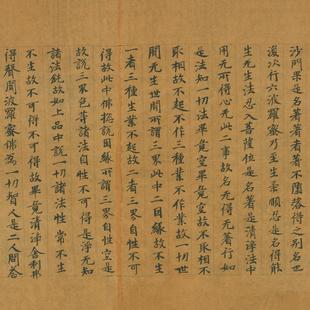 沙門果是名著著者不墮落得之別名也
復次行六波羅蜜乃至坐柔順忍是名得能
生无生法忍入菩薩位是名著是清淨法中
用无可得心无此二事故名无得无著行如
是法知一切法畢竟空畢竟空故不取相不
取相故不起不作三種業不作業故一切世
間无生世間所謂三界此中二因緣故不生
一者三種生業不起故二者三界自性不可
得故此中佛揔說因緣所謂三界自性空是
故說三界色等諸法自性不可得是淨无知
諸法鈍故如上品中說一切諸法性常不生
不生故不可得不可得故畢竟清淨舍利弗
得聲聞波羅蜜佛為一切智人是二人問荅